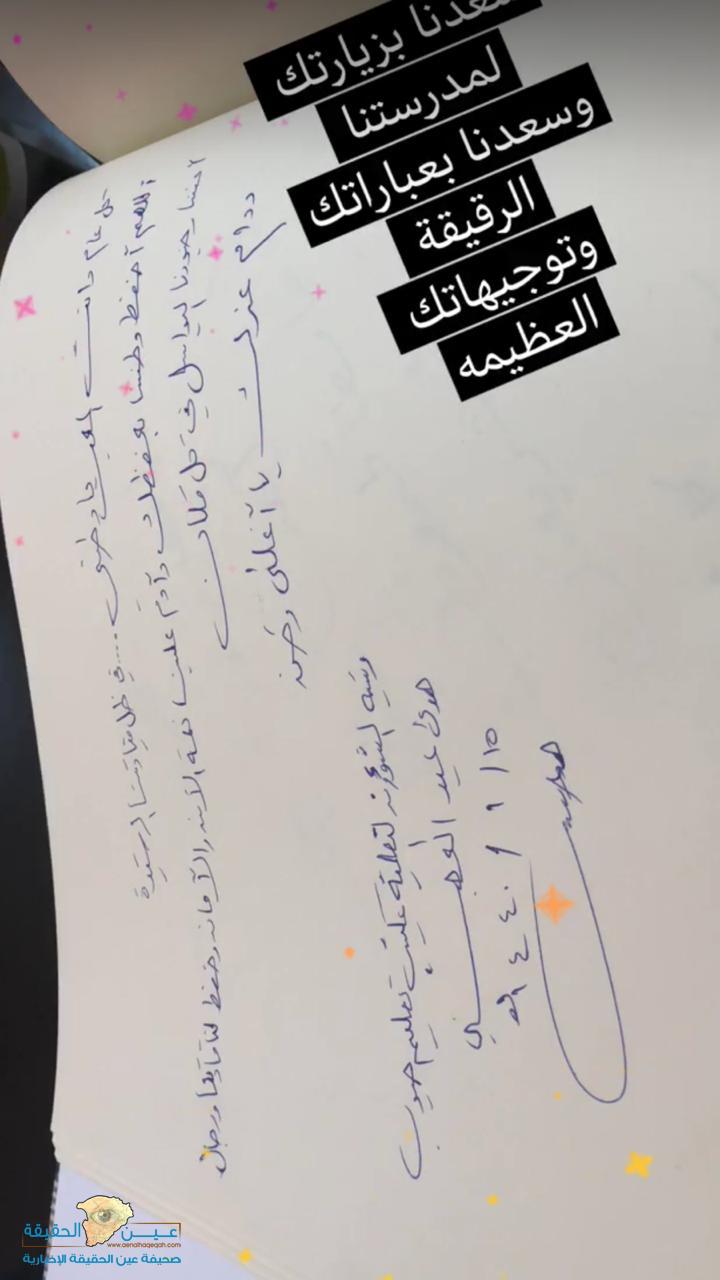 سعدنا بزيارتك
لمدرستنا
وسعدنا بعباراتك
الرقيقة
وتوجيهاتك
العظيمه
كل عام وأنت الحب يا وطني .... في ظل قيادتنا الرشيدة
اللهم احفظ وطننا بحفظك وأدم علينا نعمة الأمن والأمان واحفظ لنا قادتنا ورجال
أمننا وجنودنا البواسل في كل مكان
ودام عزك يا أغلى وطن
الشؤون التعليمية بمكتب تعليم
هدى عيد
١٥ / ١ / ١٤٤٠ هـ
عين الحقيقة
www.aenalhaqeqah.com
صحيفة عين الحقيقة الإخبارية